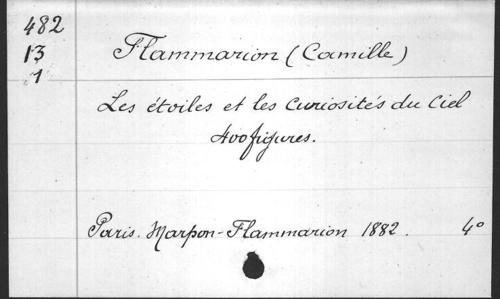 482
13
1
Flammarion (Camille)
Les étoiles et les Curiosités du Ciel
400 figures.
Paris. Marpon-Flammarion 1882. 4°